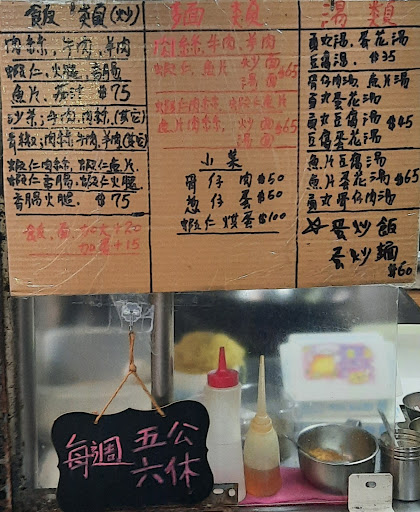 飯麵類(炒)
肉絲、牛肉、羊肉
蝦仁、火腿、香腸
魚片、茄汁 $75
沙茶:牛肉,肉絲,(其它)
青椒:肉絲,牛肉,羊肉(其它)
蝦仁肉絲、蝦仁魚片、
蝦仁香腸、蝦仁火腿、
香腸火腿. $75
飯、麵、加大+20
加蛋+15
麵類
肉絲、牛肉、羊肉
蝦仁、魚片 炒麵 湯麵 $65
蝦仁肉絲、蝦仁魚片
魚片肉絲 炒麵 湯麵 $65
小菜
骨仔肉 $50
蔥仔蛋 $50
蝦仁烘蛋 $100
湯類
貢丸湯、蛋花湯
豆腐湯、$35
骨仔肉湯、魚片湯
貢丸蛋花湯
貢丸豆腐湯 $45
豆腐蛋花湯
魚片豆腐湯
魚片蛋花湯 $65
貢丸骨仔肉湯
☆蛋炒飯
蛋炒麵 $60
每週五公
六休